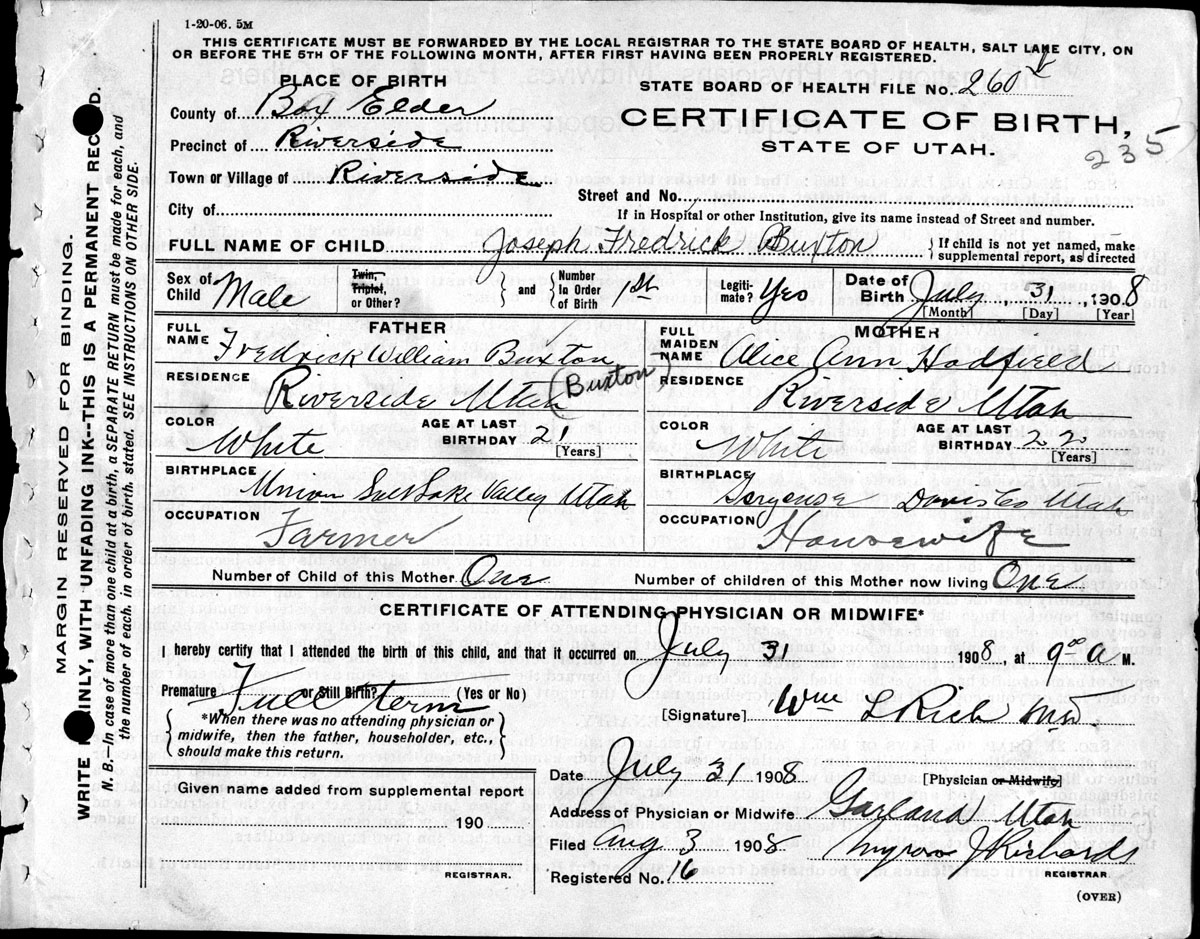 1-20-06. 5M
THIS CERTIFICATE MUST BE FORWARDED BY THE LOCAL REGISTRAR TO THE STATE BOARD OF HEALTH, SALT LAKE CITY, ON
OR BEFORE THE 5TH OF THE FOLLOWING MONTH, AFTER FIRST HAVING BEEN PROPERLY REGISTERED.
PLACE OF BIRTH
STATE BOARD OF HEALTH FILE No. 260
County of Box Elder
CERTIFICATE OF BIRTH,
STATE OF UTAH.
235
Precinct of Riverside
Town or Village of Riverside
Street and No.
City of
If in Hospital or other Institution, give its name instead of Street and number.
FULL NAME OF CHILD Joseph Fredrick Buxton { If child is not yet named, make supplemental report, as directed
Sex of Child Male Twin, Triplet, or Other? } and { Number In Order of Birth 1st Legiti-mate? Yes Date of Birth July 31, 1908
[Month] [Day] [Year]
FATHER
FULL NAME Fredrick William Buxton
(Buxton)
RESIDENCE Riverside Utah
COLOR White AGE AT LAST BIRTHDAY 21 [Years]
BIRTHPLACE Union Salt Lake Valley Utah
OCCUPATION Farmer
MOTHER
FULL MAIDEN NAME Alice Ann Hadfield
RESIDENCE Riverside Utah
COLOR White AGE AT LAST BIRTHDAY 22 [Years]
BIRTHPLACE Davis Co Utah
OCCUPATION Housewife
Number of Child of this Mother One Number of children of this Mother now living One
CERTIFICATE OF ATTENDING PHYSICIAN OR MIDWIFE*
I hereby certify that I attended the birth of this child, and that it occurred on July 31 1908, at 9:00 A M.
Premature or Still Birth? (Yes or No) Full term
{ *When there was no attending physician or
midwife, then the father, householder, etc.,
should make this return. }
[Signature] Wm L Rich MD
Date July 31 1908 [Physician or Midwife]
Given name added from supplemental report
190
REGISTRAR.
Address of Physician or Midwife Garland Utah
Filed Aug 3 1908 J Richards
Registered No. 16 REGISTRAR.
(OVER)
MARGIN RESERVED FOR BINDING.
WRITE INLY, WITH UNFADING INK--THIS IS A PERMANENT REC D.
N. B.—In case of more than one child at a birth, a SEPARATE RETURN must be made for each, and
the number of each, in order of birth, stated. SEE INSTRUCTIONS ON OTHER SIDE.